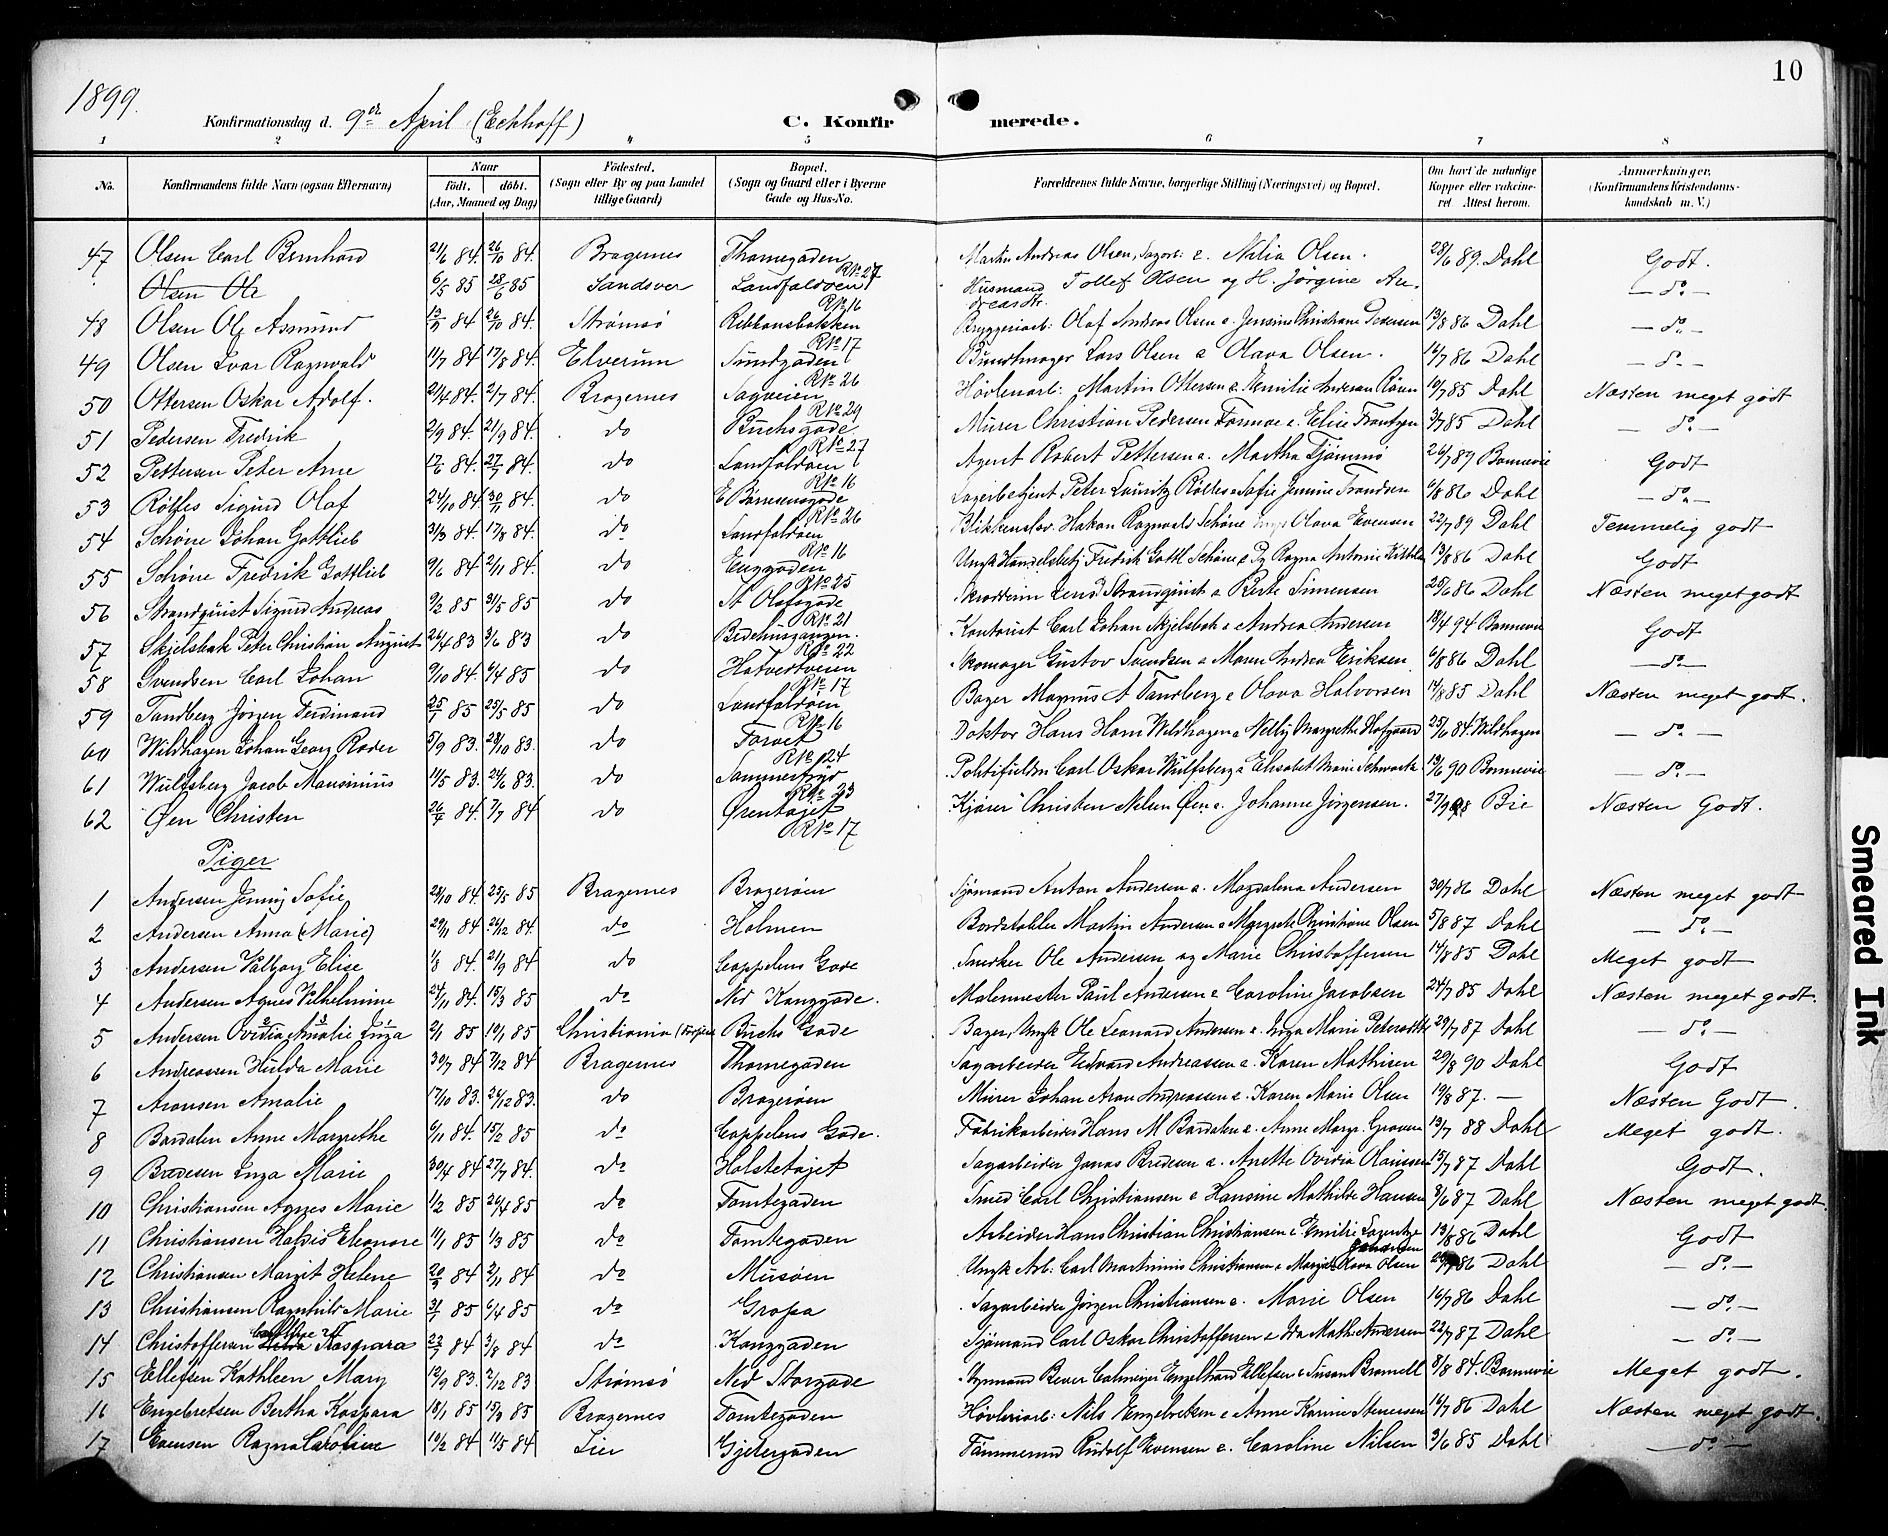 10
1899.
Konfirmationsdag d. 9de April (Eckhoff)
C. Konfirmerede.
1 2 3 4 5 6 7 8
No. Konfirmandens fulde Navn (ogsaa Efternavn) Naar födt. döbt. (Aar, Maaned og Dag) Födested. (Sogn eller By og paa Landet tillige Gaard) Bopæl. (Sogn og Gaard eller i Byerne Gade og Hus-No. Forældrenes fulde Navne, borgerlige Stilling (Næringsvei) og Bopæl. Om havt de naturlige Kopper eller vakcineret Attest herom. Anmærkninger. (Konfirmandens Kristendomskundskab m. V.)
47 Olsen Carl Bernhard 21/6 84. 26/10 84. Bragernes Thomegaden R No 27 Martin Andreas Olsen, Sagarb: e. Nilia Olsen. 28/6 89. Dahl Godt.
Olsen Ole 6/5 85 28/6 85 Sandsver Landfaldöen R No 16 Husmand Tollef Olsen og H. Jörgine Andreasdtr. — do —
48 Olsen Ole Asmund 13/9 84 26/10 84. Strømsø Ribbonsbakken R No 17 Bryggeriarb: Olaf Andreas Olsen e. Jensine Christiane Pedersen 13/8 86 Dahl — do —
49 Olsen Ivar Ragnvald 11/7 84 17/8 84. Elverum Sundgaden R No 26 Bundtmager Lars Olsen e Olava Olsen. 16/7 86 Dahl — do —
50 Ottersen Oskar Adolf. 21/4 84. 2/7 84. Bragernes Sagveien R No 29 Høvlerarb: Martin Ottersen e. Emilie Andersen 10/7 85 Dahl Næsten meget godt
51 Pedersen Fredrik 2/9 84. 21/9 84. do Buchsgade R No 27 Murer Christian Pedersen Formoe e. Elise Frantzen 3/7 85 Dahl — do —
52 Pettersen Peter Arne 17/6 84. 27/7 84. do Landfaldöen R No 16 Agent Robert Pettersen e. Martha Tjømmø 26/7 89 Bonnevie Godt
53 Rolfes Sigurd Olaf 24/10 84 30/11 84. do E Børresensgade R No 26 Lagerbetjent Peter Lauritz Rolfes e Sofie Jennine Frandsen 6/8 86 Dahl — do —
54 Schöne Johan Gottlieb 31/3 84. 17/8 84. do Landfaldöen R No 16 Blikkenslar. Hakon Ragnvald Schöne Olava Evensen 22/7 89 Dahl Temmelig godt
55 Schöne Fredrik Gottlieb 9/6 84 2/11 84. do Enggaden R No 25 Ungk Handelsbetj Fredrik Gottl Schöne e Pg Ragna Antonie 13/8 86 Dahl Godt
56 Strandquist Sigurd Andreas 9/2 85 31/5 85 do St Olafsgade R No 21 Strandquist e Berte Simensen 25/6 86 Dahl Næsten meget godt
57 Skjelsbæk Peter Christian August 26/4 83 3/6 83 do Bedehusgangen. R No 22 Kontorist Carl Johan Skjelsbæk e Andrea Andersen 18/4 94 Bonnevie Godt
58 Svendsen Carl Johan 9/10 84. 6/4 85 do Hotvedtveien R No 17 Skomager Gustav Svendsen e Maren Andrea Eriksen 6/8 86 Dahl — do —
59 Tandberg Jörgen Ferdinand 25/1 85 25/5 85 do Landfaldöen R No 16 Bager Magnus A Tandberg e Olava Halvorsen 14/8 85 Dahl Næsten meget godt.
60 Wildhagen Johan Georg Roder 5/9 83. 28/10 83. do Torvet R No 124 Doktor Hans Wildhagen e Nelly Margrethe Hofgaard 25/6 84 Wildhagen — do —
61 Wulfsberg Jacob Mausinius 11/5 83. 24/6 83. do Sommerfryd R No 23 Politifuldm Carl Oskar Wulfsberg e Elisabet Marie Schwartz 13/6 90 Bonnevie — do —
62 Øen Christen 26/4 84. 7/7 84 do Ørentøjet R No 17 Kjører Christen Nilsen Øen e. Johanne Jørgensen. 27/9 98 Bie Næsten Godt.
Piger
1 Andersen Jenny Sofie 28/10 84. 25/5 85 Bragernes Bragerøen Sjømand Anton Andersen e. Magdalena Andersen 30/7 86 Dahl Næsten meget godt
2 Andersen Anna (Marie) 29/11 84 26/12 84. do Holmen Bordstabler Martin Andersen e Margrete Christine Olsen 5/8 87 Dahl — do —
3 Andersen Valborg Elise 1/8 84. 21/9 84 do Cappelens Gade Snedker Ole Andersen og Marie Christoffersen 14/8 85 Dahl Meget godt
4 Andersen Agnes Vilhelmine 24/11 84. 15/3 85 do Ned Konggade. Malermester Paul Andersen e Caroline Jacobsen 24/7 85 Dahl Næsten meget godt.
5 Andersen Ovidia Amalie Inga 2/1 85 10/1 85 Christiania Buchs Gade Bager, Ungk Ole Leonard Andersen e. Inga Marie Petersdtt 29/7 87 Dahl — do —
6 Andreassen Hulda Marie 30/7 84 7/12 84 Bragernes Thomegaden Sagarbeider Edvard Andreassen e. Karen Mathisen 29/8 90 Dahl Godt
7 Aronsen Amalie 17/10 83. 26/12 83. do Bragerøen Murer Johan Aron Andreassen e. Karen Marie Olsen 19/8 87. — Næsten Godt.
8 Bardalen Anne Margrethe 6/11 84. 15/2 85 do Cappelens Gade. Fabrikarbeider Hans M Bardalen e. Anne Margr. Graven 13/7 88 Dahl Meget godt.
9 Bredesen Inga Marie 30/4 84 27/7 84. do Holstetøjet Sagarbeider Jonas Bredesen e. Anette Ovidia Olaussen 15/7 87 Dahl Godt.
10 Christiansen Agnes Marie 1/2 85 26/4 85 do Tomtegaden Smed Carl Christiansen e Hansine Mathilde Hansen 8/6 87 Dahl Næsten meget godt.
11 Christiansen Haldis Eleonore 11/1 85 1/3 85 do Tomtegaden Arbeider Hans Christian Christiansen e Emilie Lagertze 13/8 86 Dahl Godt
12 Christiansen Margit Helene 20/9 84 2/11 84 do Musøen Ungk Arb: Carl Martinius Christiansen e Marie Olava Olsen 86 Dahl — do —
13 Christiansen Ragnhild Marie 31/1 85 6/4 85 do Gropa Sagarbeider Jörgen Christiansen e. Marie Olsen 16/7 86 Dahl — do —
14 Christoffersen Hilda Kaspara 23/7 84 3/8 84 do Konggaden Sjömand Carl Oskar Christoffersen e Ida Math. Andersen 22/7 87 Dahl — do —
15 Ellefsen Kathleen Mary 12/9 83. 2/12 83 Strømsø Ned Storgade Styrmand Bever Colmeijer Engelhard Ellefsen e Susan Bramell 8/8 84. Bonnevie Meget godt.
16 Engebretsen Bertha Kaspara 18/1 85 15/3 85 Bragernes Tomtegaden Høvleriarb: Nils Engebretsen e Anne Karine Stenersen 16/7 86 Dahl Næsten meget godt.
17 Evensen Ragna Caroline 10/2 84 11/5 84 Lier Gjetergaden Tømmermd Rudolf Evensen e. Caroline Nilsen 3/6 85 Dahl — do —
Smeared Ink